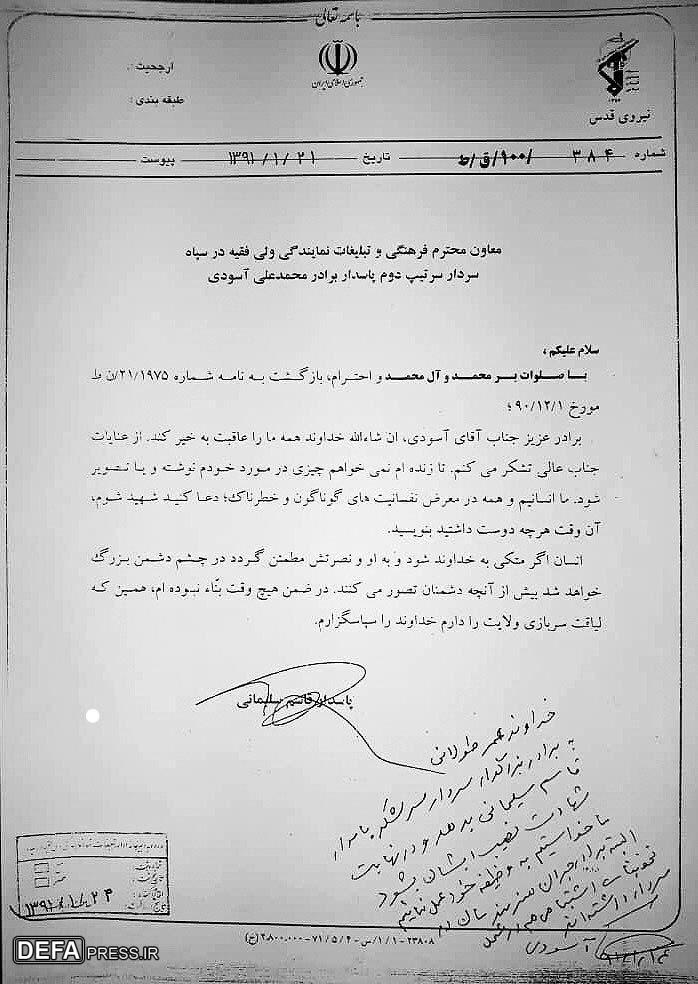 باسمه تعالی
ارجحیت :
جمهوری اسلامی ایران
طبقه بندی :
نیروی قدس
شماره ۳۸۴ /۱۰۰/ق/ط تاریخ ۱۳۹۱/۱/۲۱ پیوست
معاون محترم فرهنگی و تبلیغات نمایندگی ولی فقیه در سپاه
سردار سرتیپ دوم پاسدار برادر محمدعلی آسودی
سلام علیکم ،
با صلوات بر محمد و آل محمد و احترام، بازگشت به نامه شماره ۲۱/۱۹۷۵/ن ط
مورخ ۹۰/۱۲/۱ ؛
برادر عزیز جناب آقای آسودی، ان شاءالله خداوند همه ما را عاقبت به خیر کند. از عنایات
جناب عالی تشکر می کنم. تا زنده ام نمی خواهم چیزی در مورد خودم نوشته و یا تصویر
شود. ما انسانیم و همه در معرض نفسانیت های گوناگون و خطرناک؛ دعا کنید شهید شوم،
آن وقت هرچه دوست داشتید بنویسید.
انسان اگر متکی به خداوند شود و به او و نصرتش مطمئن گردد در چشم دشمن بزرگ
خواهد شد بیش از آنچه دشمنان تصور می کنند. در ضمن هیچ وقت بنّاء نبوده ام، همین که
لیاقت سربازی ولایت را دارم خداوند را سپاسگزارم.
پاسدار قاسم سلیمانی
خداوند عمر طولانی
به برادر بزرگوار سردار سرلشکر پاسدار
قاسم سلیمانی بدهد و در نهایت
شهادت نصیب ایشان بشود
ما خواستیم به وظیفه خود عمل نمائیم
البته برادر
آسودی
۱۳۹۱/۱/۲۴
۲۳۸۰۸-۱/۱/س-۷۱/۵/۴-۲.۸۰۰.۰۰۰ (خ)
DEFAPRESS.IR